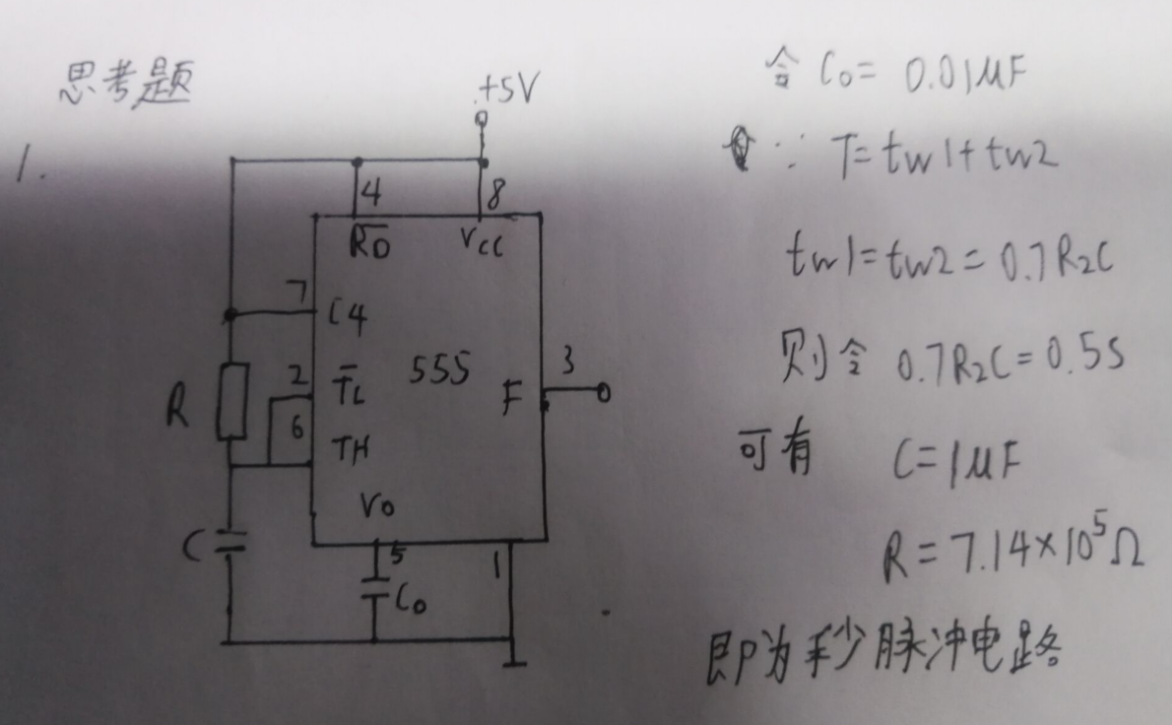 思考题
1.
+5V
4
8
R̅D̅
VCC
7
C4
555
2
T̅L
3
F
R
6
TH
V0
C
5
1
C0
令 C0 = 0.01μF
∵ T = tw1 + tw2
tw1 = tw2 = 0.7R2C
则令 0.7R2C = 0.5S
可有 C = 1μF
R = 7.14×10⁵Ω
即为秒脉冲电路